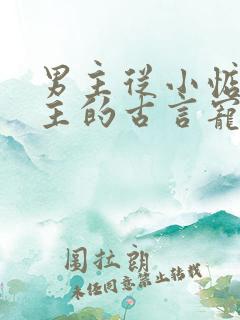 男主从小惦
主的古言宠
围拉朗
未经同意禁止转载